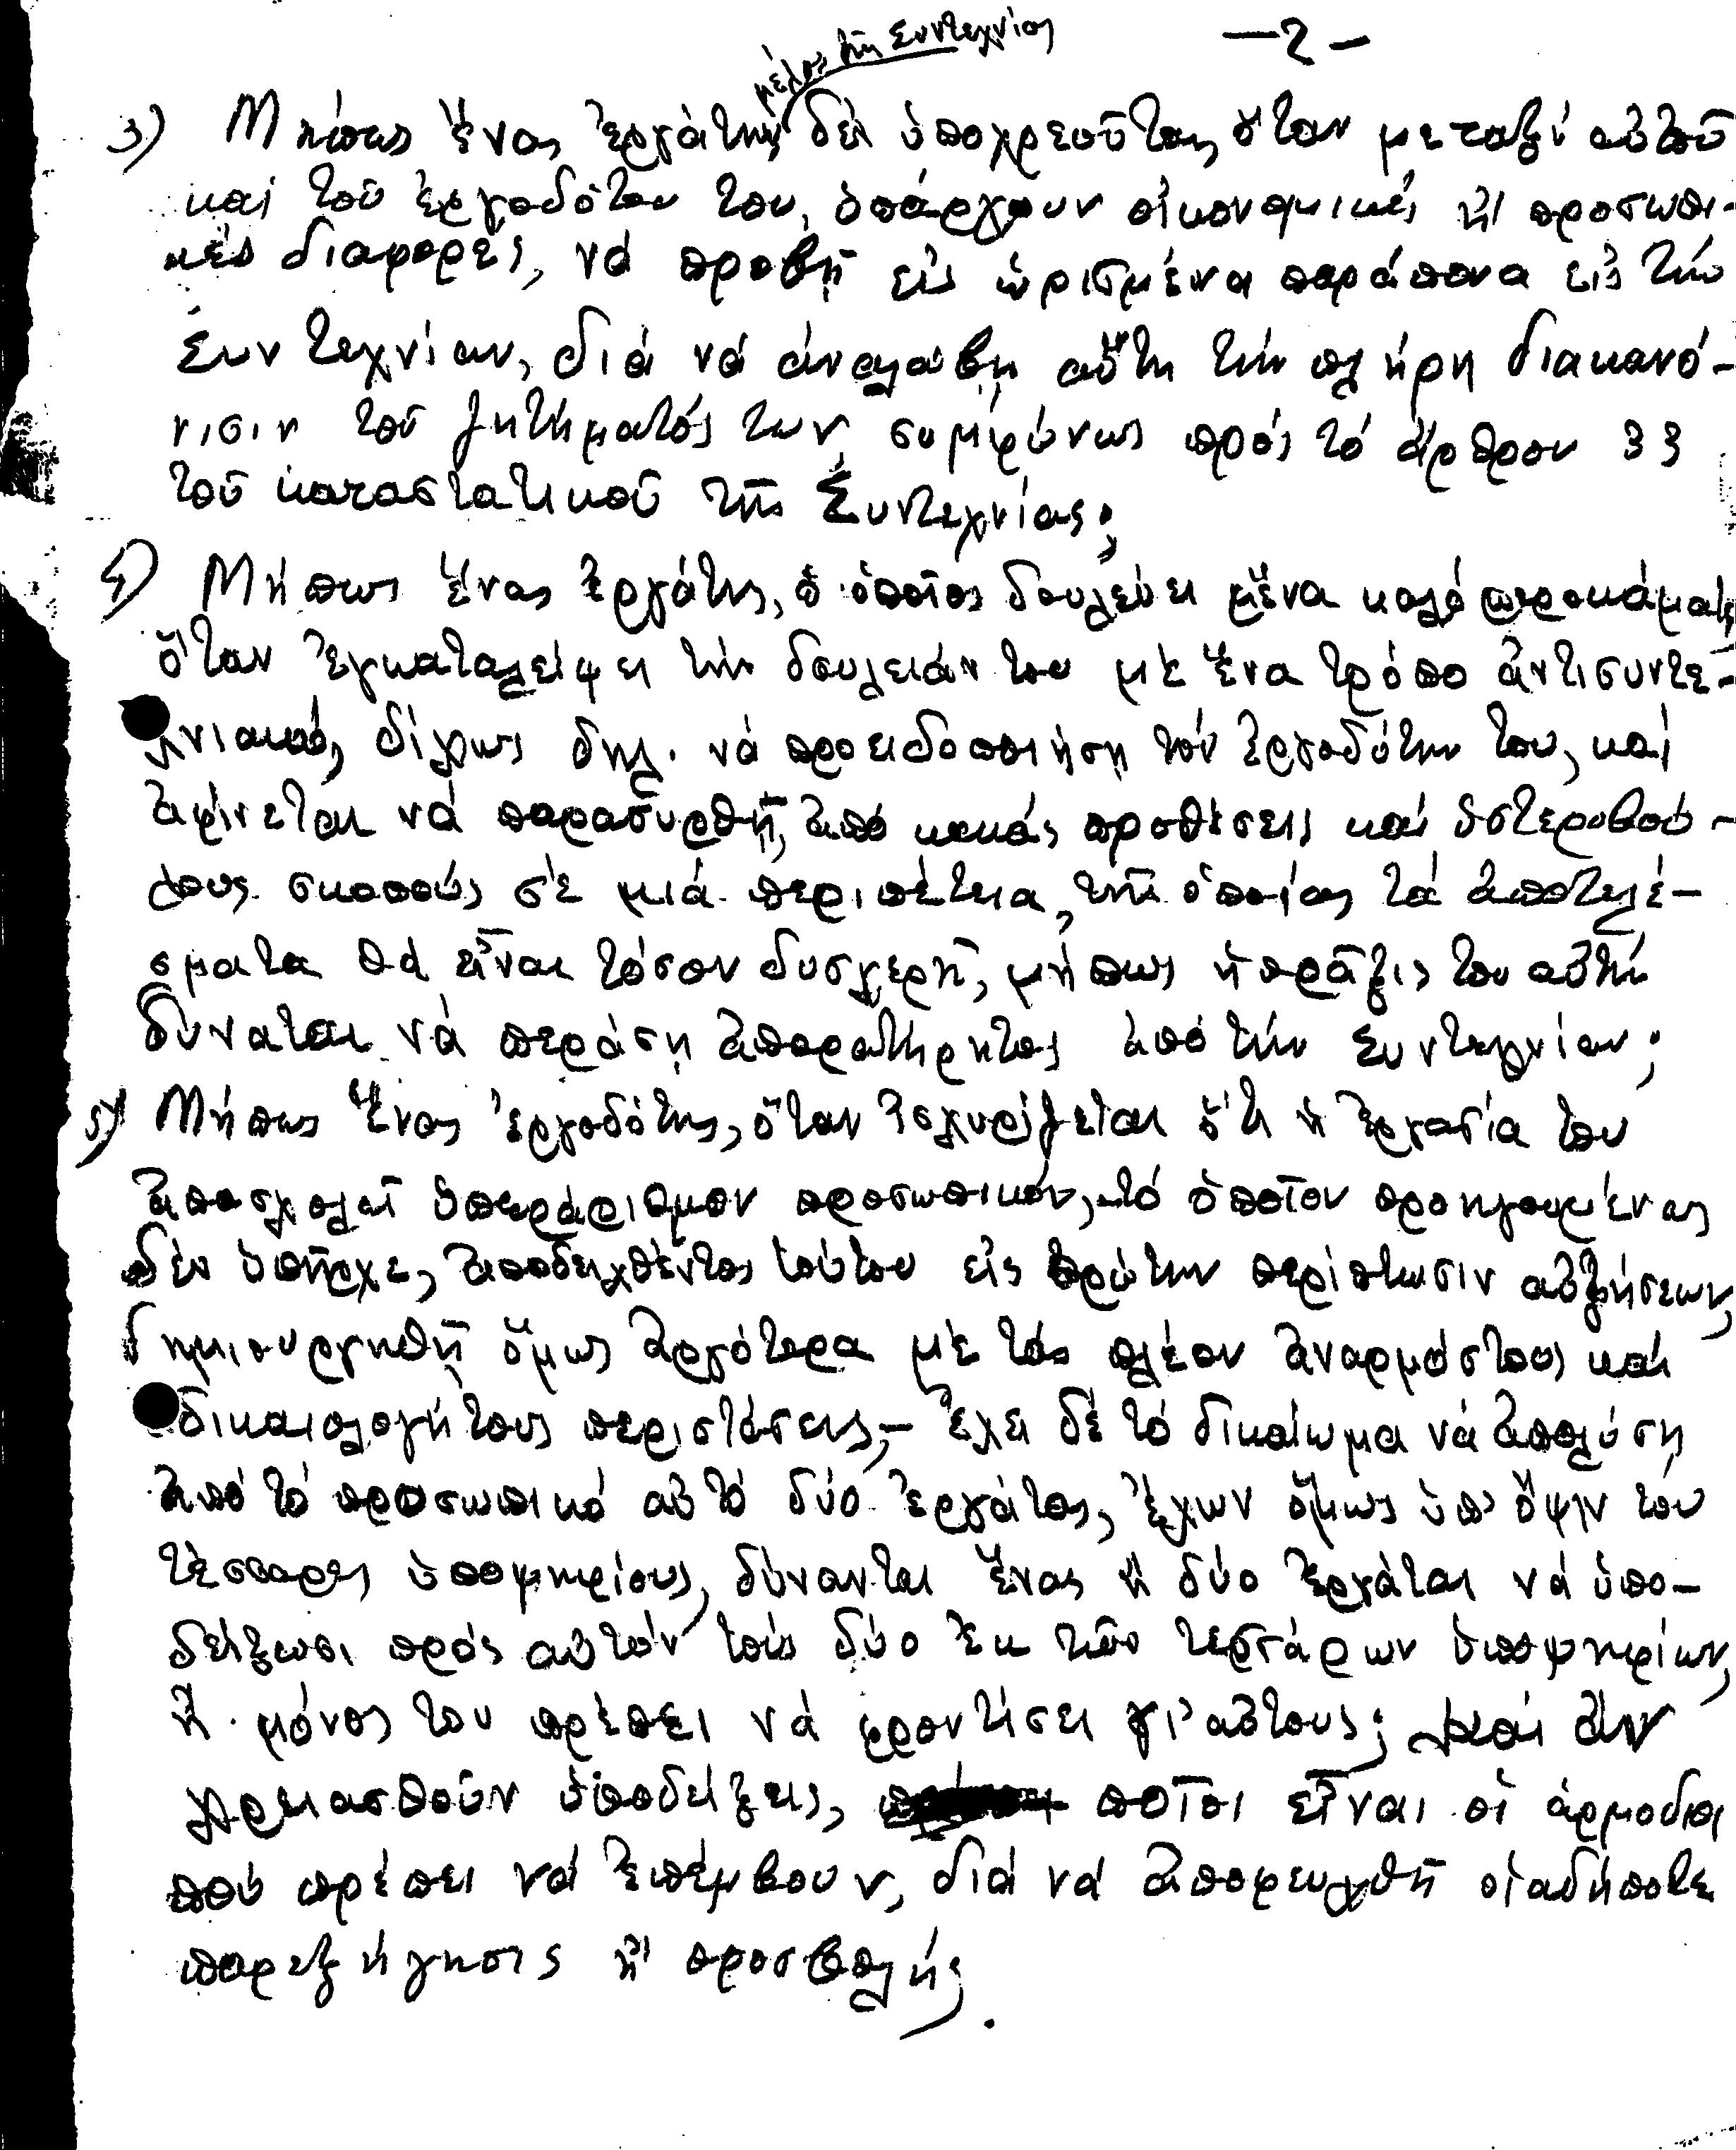 μέλος τῆς Συντεχνίας
—2—
3) Μήπως ἕνας ἐργάτης δέν ὑποχρεοῦται, ὅταν μεταξύ αὐτοῦ
καί τοῦ ἐργοδότου του, ὑπάρχουν οἰκονομικές ἤ προσωπι-
κές διαφορές, νά προβῆ εἰς ὡρισμένα παράπονα εἰς τήν
Συντεχνίαν, διά νά ἀναλάβη αὕτη τήν πλήρη διακανό-
νισιν τοῦ ζητήματός των, συμφώνως πρός τό ἄρθρον 33
τοῦ καταστατικοῦ τῆς Συντεχνίας;
4) Μήπως ἕνας ἐργάτης, ὁ ὁποῖος δουλεύει μένα καλό
ὅταν ἐγκαταλείψει τήν δουλειάν του μέ ἕνα τρόπο ἀντισυντε-
χνιακό, δίχως δηλ. νά προειδοποιήση τόν ἐργοδότην του, καί
ἀφίνεται νά παρασυρθῆ, ἀπό κακάς προθέσεις καί ὑστεροβού-
λους σκοπούς σέ μιά περιπέτεια, τῆς ὁποίας τά ἀποτελέ-
σματα θά εἶναι τόσον δυσχερῆ, μήπως ἡ πρᾶξις του αὐτή
δύναται νά περάση ἀπαρατήρητος ἀπό τήν Συντεχνίαν;
5) Μήπως ἕνας ἐργοδότης, ὅταν ἰσχυρίζεται ὅτι ἡ ἐργασία του
ἀπασχολεῖ ὑπεράριθμον προσωπικόν, τό ὁποῖον προηγουμένως
δέν ὑπῆρχε, ἀποδειχθέντος τούτου εἰς πρώτην περίπτωσιν αὐξήσεων,
δημιουργηθῆ ὅμως ἀργότερα μέ τάς πλέον ἀναρμόστους καί
δικαιολογήτους περιστάσεις,— ἔχει δέ τό δικαίωμα νά ἀπολύση
ἀπό τό προσωπικό αὐτό δύο ἐργάτας, ἔχων ὅμως ὑπ' ὄψιν του
τέσσαρες ὑποψηφίους, δύνανται ἕνας ἤ δύο ἐργάται νά ὑπο-
δείξωσι πρός αὐτόν τούς δύο ἐκ τῶν τεσσάρων ὑποψηφίων,
ἤ μόνος του πρέπει νά φροντίσει γι' αὐτούς; καί ἄν
χρειασθοῦν ὑποδείξεις, ποῖοι εἶναι οἱ ἁρμόδιοι
πού πρέπει νά ἐπέμβουν, διά νά ἀποφευχθῆ οἱαδήποτε
παρεξήγησις ἤ προσβολή;